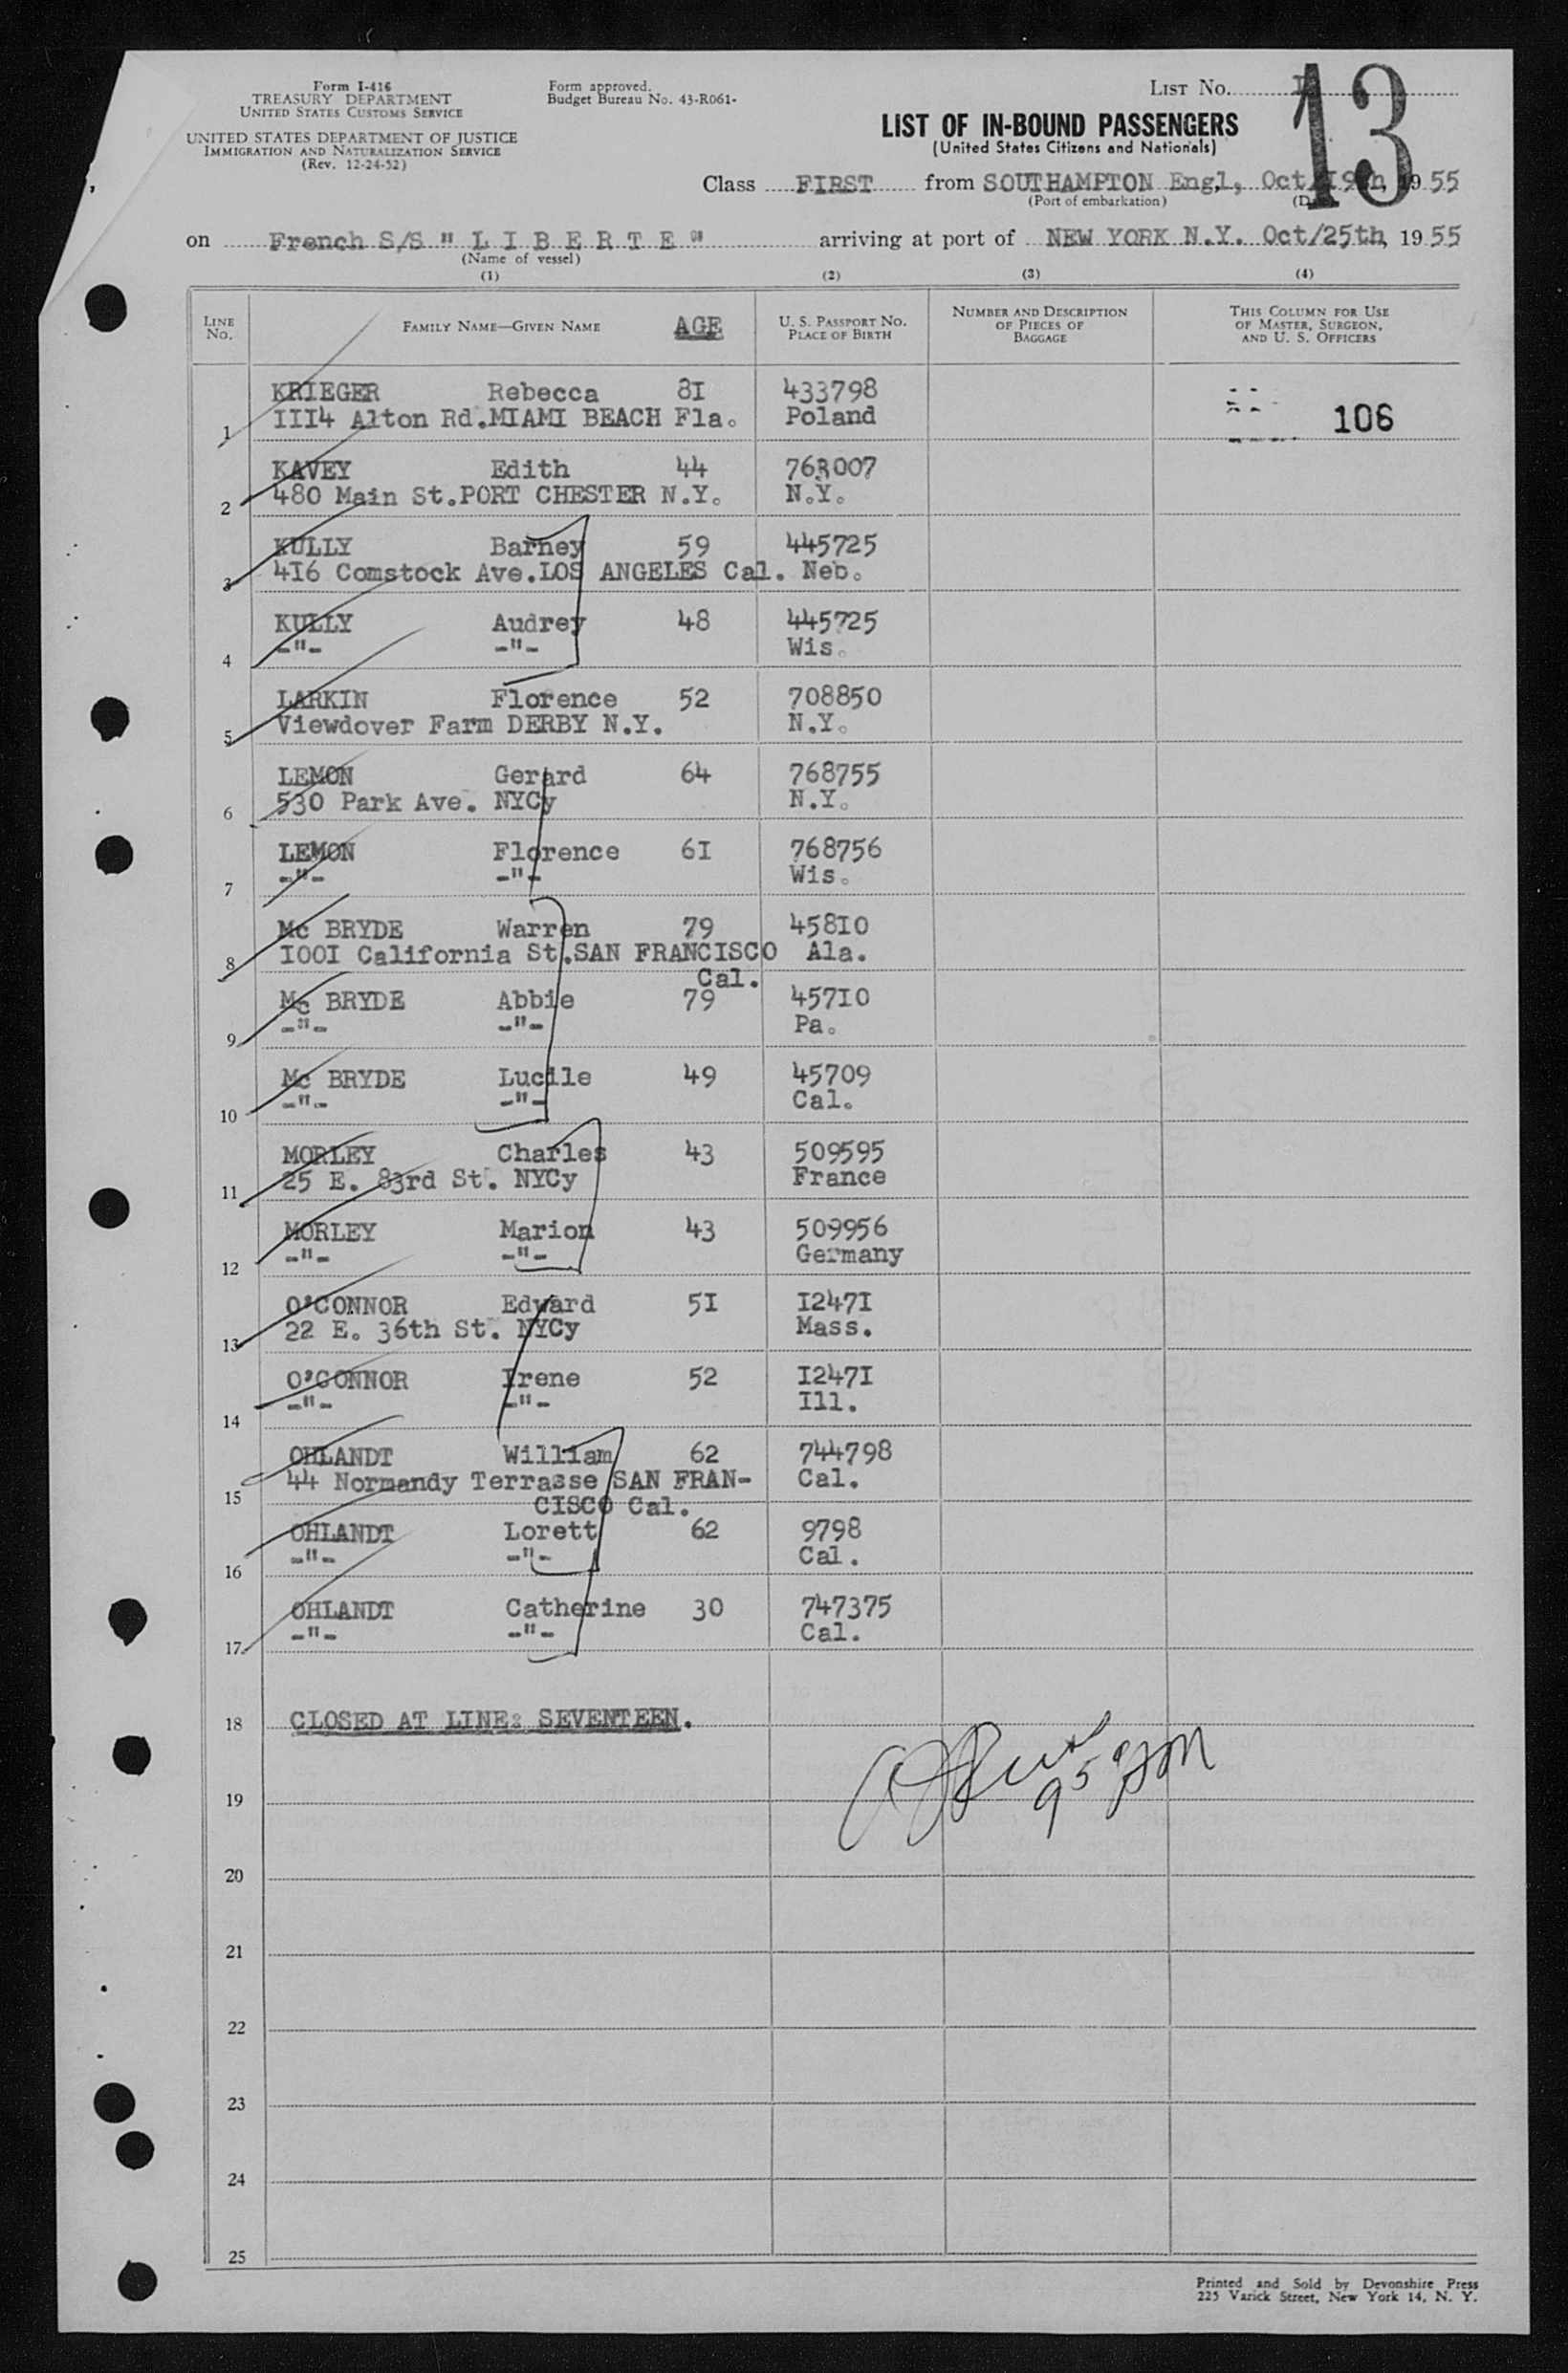 Form I-416
TREASURY DEPARTMENT
UNITED STATES CUSTOMS SERVICE
UNITED STATES DEPARTMENT OF JUSTICE
IMMIGRATION AND NATURALIZATION SERVICE
(Rev. 12-24-52)
Form approved.
Budget Bureau No. 43-R061-
LIST No.
13
LIST OF IN-BOUND PASSENGERS
(United States Citizens and Nationals)
Class FIRST from SOUTHAMPTON Engl, Oct/19th, 1955
(Port of embarkation)
on French S/S " L I B E R T E " arriving at port of NEW YORK N.Y. Oct/25th, 1955
(Name of vessel)
(1) (2) (3) (4)
LINE No. FAMILY NAME—GIVEN NAME AGE U. S. PASSPORT NO. PLACE OF BIRTH NUMBER AND DESCRIPTION OF PIECES OF BAGGAGE THIS COLUMN FOR USE OF MASTER, SURGEON, AND U. S. OFFICERS
KRIEGER Rebecca 8I 433798
1 III4 Alton Rd.MIAMI BEACH Fla. Poland 106
KAVEY Edith 44 763007
2 480 Main St.PORT CHESTER N.Y. N.Y.
KULLY Barney 59 445725
3 4I6 Comstock Ave.LOS ANGELES Cal. Neb.
KULLY Audrey 48 445725
4 -"- -"- Wis.
LARKIN Florence 52 708850
5 Viewdover Farm DERBY N.Y. N.Y.
LEMON Gerard 64 768755
6 530 Park Ave. NYCy N.Y.
LEMON Florence 6I 768756
7 -"- -"- Wis.
Mc BRYDE Warren 79 458I0
8 I00I California St.SAN FRANCISCO Ala.
Cal.
Mc BRYDE Abbie 79 457I0
9 -"- -"- Pa.
Mc BRYDE Lucile 49 45709
10 -"- -"- Cal.
MORLEY Charles 43 509595
11 25 E. 83rd St. NYCy France
MORLEY Marion 43 509956
12 -"- -"- Germany
O'CONNOR Edward 5I I247I
13 22 E. 36th St. NYCy Mass.
O'CONNOR Irene 52 I247I
14 -"- -"- Ill.
OHLANDT William 62 744798
15 44 Normandy Terrasse SAN FRAN- Cal.
CISCO Cal.
OHLANDT Lorett 62 9798
16 -"- -"- Cal.
OHLANDT Catherine 30 747375
17 -"- -"- Cal.
18 CLOSED AT LINE: SEVENTEEN.
19
20
21
22
23
24
25
Printed and Sold by Devonshire Press
225 Varick Street, New York 14, N. Y.